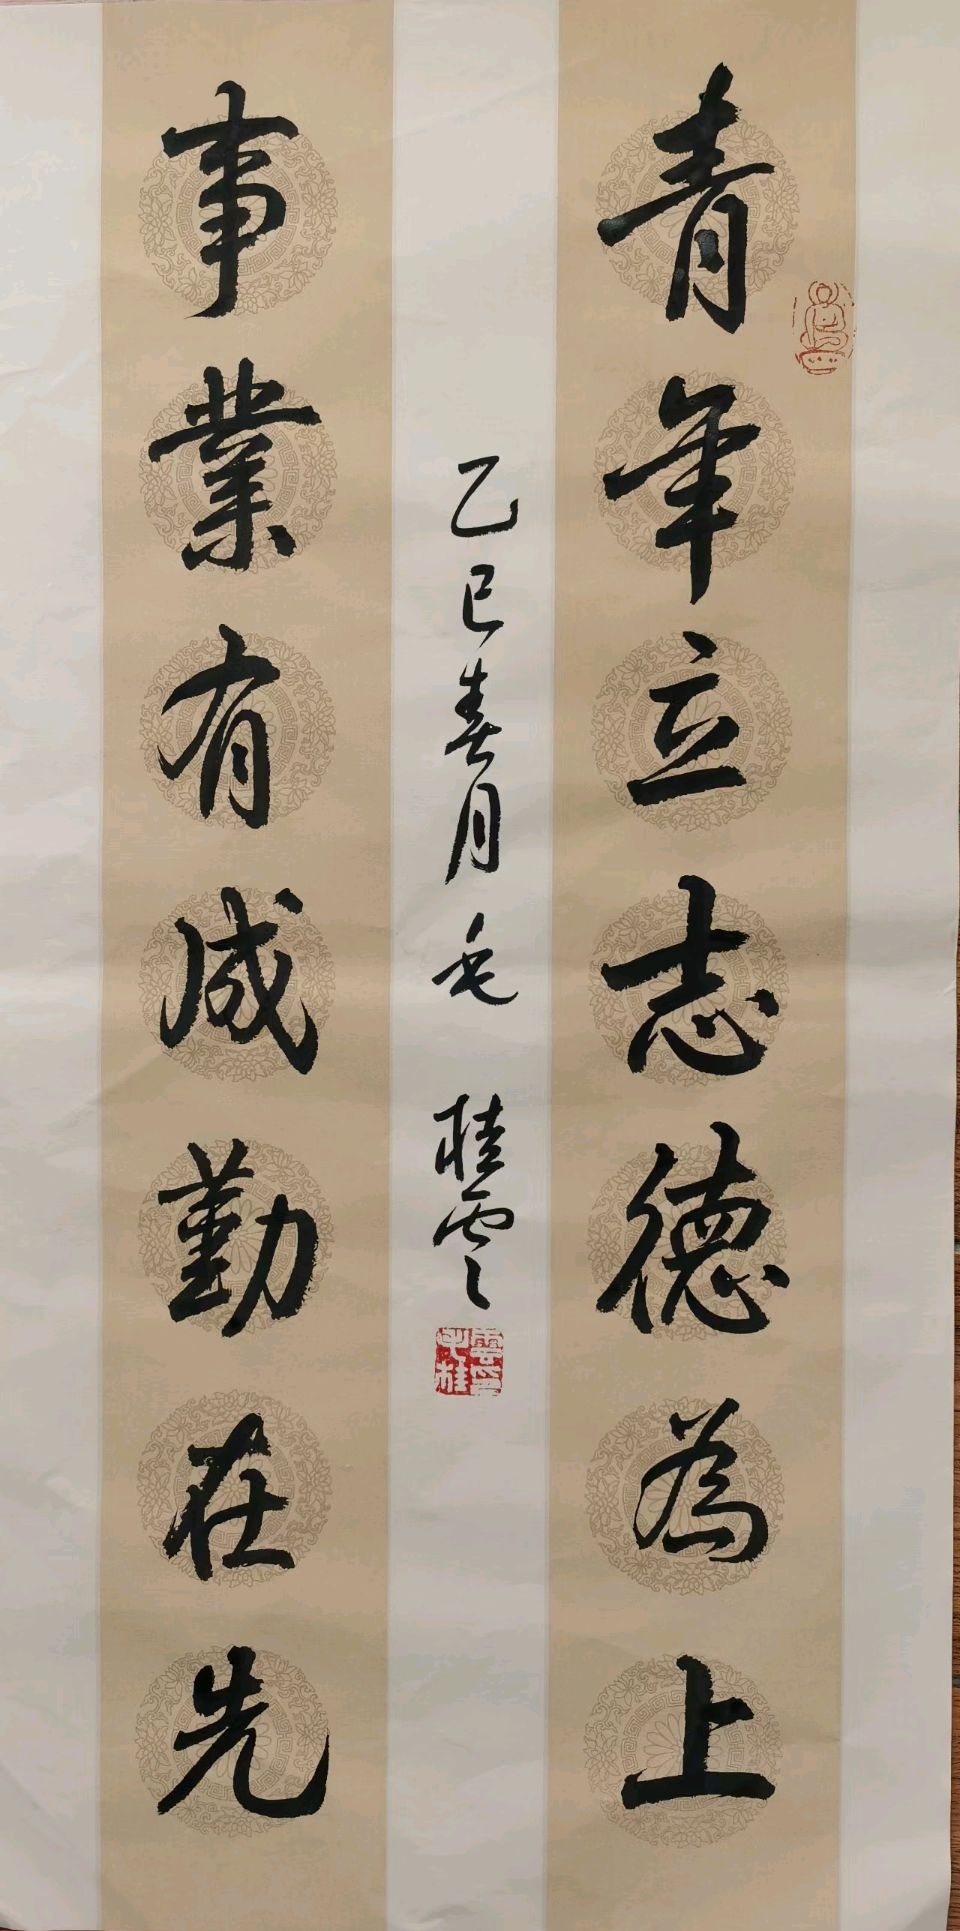 青年立志德為上
事業有成勤在先
乙巳春月毛桂雲
毛桂雲印